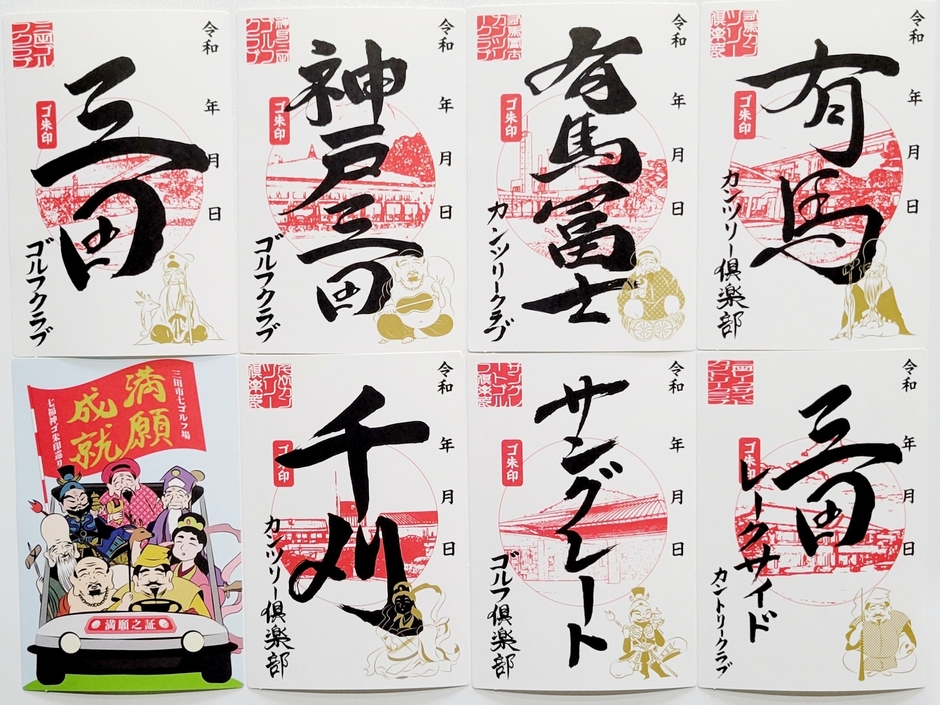 令和 年 月 日
ゴ朱印
三田
ゴルフクラブ
令和 年 月 日
ゴ朱印
神戸三田
ゴルフクラブ
令和 年 月 日
ゴ朱印
有馬冨士
カンツリークラブ
令和 年 月 日
ゴ朱印
有馬
カンツリー倶楽部
三田市七ゴルフ場
満願
成就
七福神ゴ朱印巡り
満願之証
令和 年 月 日
ゴ朱印
千刈
カンツリー倶楽部
令和 年 月 日
ゴ朱印
サングレート
ゴルフ倶楽部
令和 年 月 日
ゴ朱印
三田
レークサイド
カントリークラブ